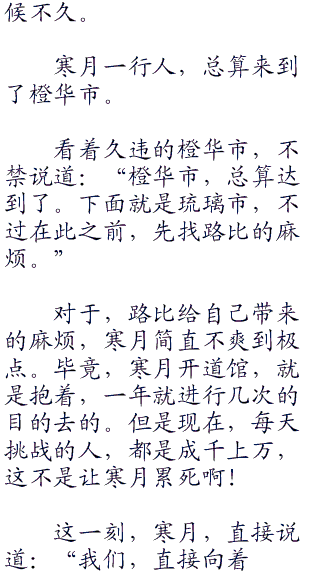 候不久。
寒月一行人，总算来到
了橙华市。
看着久违的橙华市，不
禁说道：“橙华市，总算达
到了。下面就是琉璃市，不
过在此之前，先找路比的麻
烦。”
对于，路比给自己带来
的麻烦，寒月简直不爽到极
点。毕竟，寒月开道馆，就
是抱着，一年就进行几次的
目的去的。但是现在，每天
挑战的人，都是成千上万，
这不是让寒月累死啊！
这一刻，寒月，直接说
道：“我们，直接向着